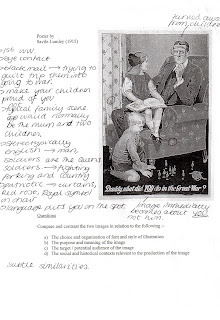 turned away
from children
Poster by
Savile Lumley (1915)
1st WW
eye contact
blackmail → trying to
guilt trip them into
going to war.
make your children
proud of you
typical family scene
would normally
be the mum and two
children.
Stereotypically
english → man,
soldiers are the Queens
soldiers → fighting
for king and country
patriotic → curtains,
red rose, Royal symbol
on chair
language puts you on the spot.
Daddy, what did YOU do in the Great War?
Image immediately
becomes about you
not him.
Questions
Compare and contrast the two images in relation to the following :-
a) The choice and organisation of font and style of illustration
b) The purpose and meaning of the image
c) The target / potential audience of the image
d) The social and historical contexts relevant to the production of the image
subtle similarities